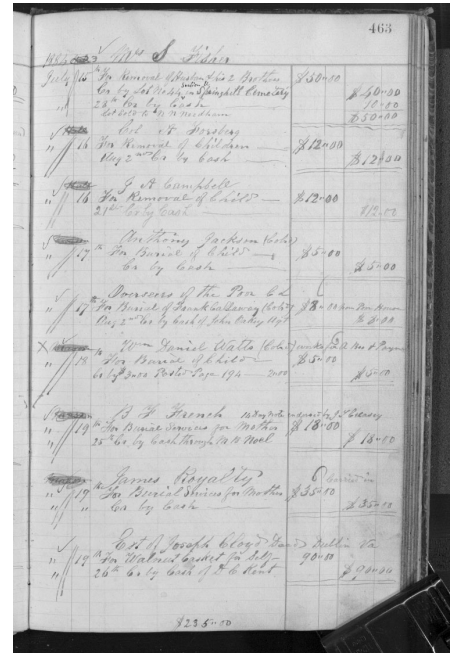 463
Mrs S Fisher
July 15 th For Removal of Husband & his 2 Brothers $50-00
Cr by Lot No in Springhill Cemetery $40-00
28th Cr by Cash 10-00
$50-00
Col A Forsberg
" 16 For Removal of Children $12-00
Aug 2nd Cr by Cash $12-00
J A Campbell
" 16 For Removal of Child $12-00
21st Cr by Cash $12-00
Anthony Jackson (Cold)
" 17 th For Burial of Child $5-00
Cr by Cash $5-00
Overseers of the Poor C L
" 17 th For Burial of Frank Callaway (Cold) $8-00 from Poor House
Aug 2nd Cr by Cash of John Oakey $8-00
X Wm Daniel Watts (Cold)
" 18 th For Burial of Child $5-00
Cr by 3-00 Posted Page 194 2-00 $5-00
B F French
" 19 th For Burial Services for Mother $18-00
25th Cr by Cash through M H Noel $18-00
James Royalty
" 19 th For Burial Services for Mother $35-00
" " Cr by Cash $35-00
Est of Joseph Cloyd Dublin Va
" 19 th For Walnut Casket for Self 90-00
" 26th Cr by Cash of D C Kent $90-00
$235-00